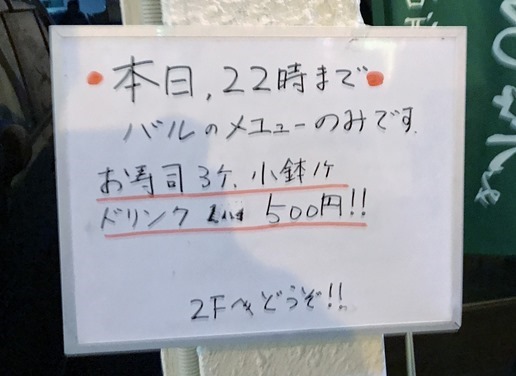 本日,22時まで
バルのメニューのみです.
お寿司3ケ、小鉢1ケ
ドリンク 500円!!
2Fへどうぞ!!